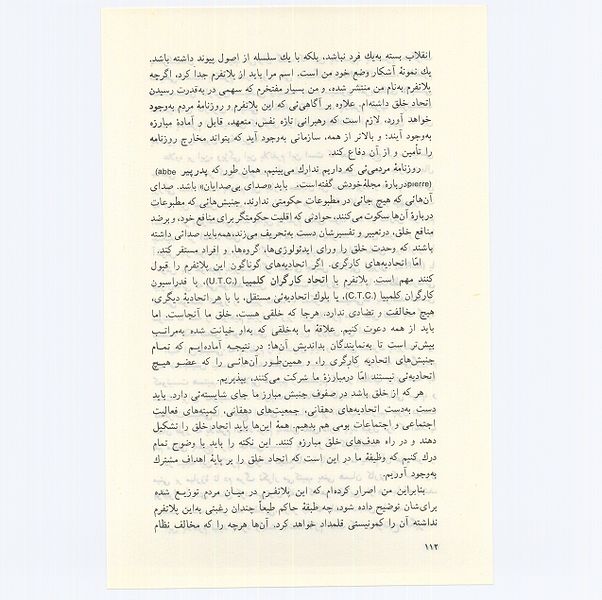 انقلاب بسته به‌یك فرد نباشد، بلکه با یك سلسله از اصول پیوند داشته باشد.
یك نمونهٔ آشکار وضع خود من است. اسم مرا باید از پلاتفرم جدا کرد، اگرچه
پلاتفرم به‌نام من منتشر شده، و من بسیار مفتخرم که سهمی در به‌قدرت رسیدن
اتحاد خلق داشته‌ام. علاوه بر آگاهی‌ئی که این پلاتفرم و روزنامهٔ مردم به‌وجود
خواهد آورد، لازم است که رهبرانی تازه نفس، متعهد، قابل و آمادهٔ مبارزه
به‌وجود آیند؛ و بالاتر از همه، سازمانی به‌وجود آید که بتواند مخارج روزنامه
را تأمین و از آن دفاع کند.
روزنامهٔ مردمی‌ئی که داریم تدارك می‌بینیم، همان طور که پدر پیر (abbe
pierre) دربارهٔ مجلهٔ خودش گفته‌است، باید «صدای بی‌صدایان» باشد. صدای
آن‌هائی که هیچ جائی در مطبوعات حکومتی ندارند، جنبش‌هایی که مطبوعات
دربارهٔ آن‌ها سکوت می‌کنند، حوادثی که اقلیت حکومتگر برای منافع خود، و برضد
منافع خلق، درتعبیر و تفسیرشان دست به‌تحریف می‌زند، همه‌باید صدائی داشته
باشند که وحدت خلق را ورای ایدئولوژی‌ها، گروه‌ها، و افراد مستقر کند.
امّا اتحادیه‌های کارگری. اگر اتحادیه‌های گوناگون این پلاتفرم را قبول
کنند مهم است. پلاتفرم با اتحاد کارگران کلمبیا (U.T.C.)، با فدراسیون
کارگران کلمبیا (C.T.C.)، با بلوك اتحادیه‌ئی مستقل، یا با هر اتحادیهٔ دیگری،
هیچ مخالفت و تضادی ندارد. هرجا که خلقی هست، خلق ما آنجاست. اما
باید از همه دعوت کنیم. علاقهٔ ما به‌خلقی که به‌او خیانت شده به‌مراتب
بیش‌تر است تا به‌نمایندگان بداندیش آن‌ها؛ در نتیجـه آماده‌ایـم که تمـام
جنبش‌های اتحادیه کارگری را، و همین‌طـور آن‌هائـی را که عضـو هیـچ
اتحادیه‌ئی نیستند امّا درمبارزهٔ ما شرکت می‌کنند، بپذیریم.
هر که از خلق باشد در صفوف جنبش مبارز ما جای شایسته‌ئی دارد. باید
دست به‌دست اتحادیه‌های دهقانی، جمعیت‌های دهقانی، کمیته‌های فعالیت
اجتماعی و اجتماعات بومی هم بدهیم. همهٔ این‌ها باید اتحاد خلق را تشکیل
دهند و در راه هدف‌های خلق مبارزه کنند. این نکته را باید با وضوح تمام
درك کنیم که وظیفهٔ ما در این است که اتحاد خلق را بر پایهٔ اهداف مشترك
به‌وجود آوریم.
بنابراین من اصرار کرده‌ام که این پلاتفـرم در میـان مردم توزیـع شده
برای‌شان توضیح داده شود، چه طبقهٔ حاکم طبعاً چندان رغبتی به‌این پلاتفرم
نداشته آن را کمونیستی قلمداد خواهد کرد. آن‌ها هرچه را که مخالف نظام
۱۱۲